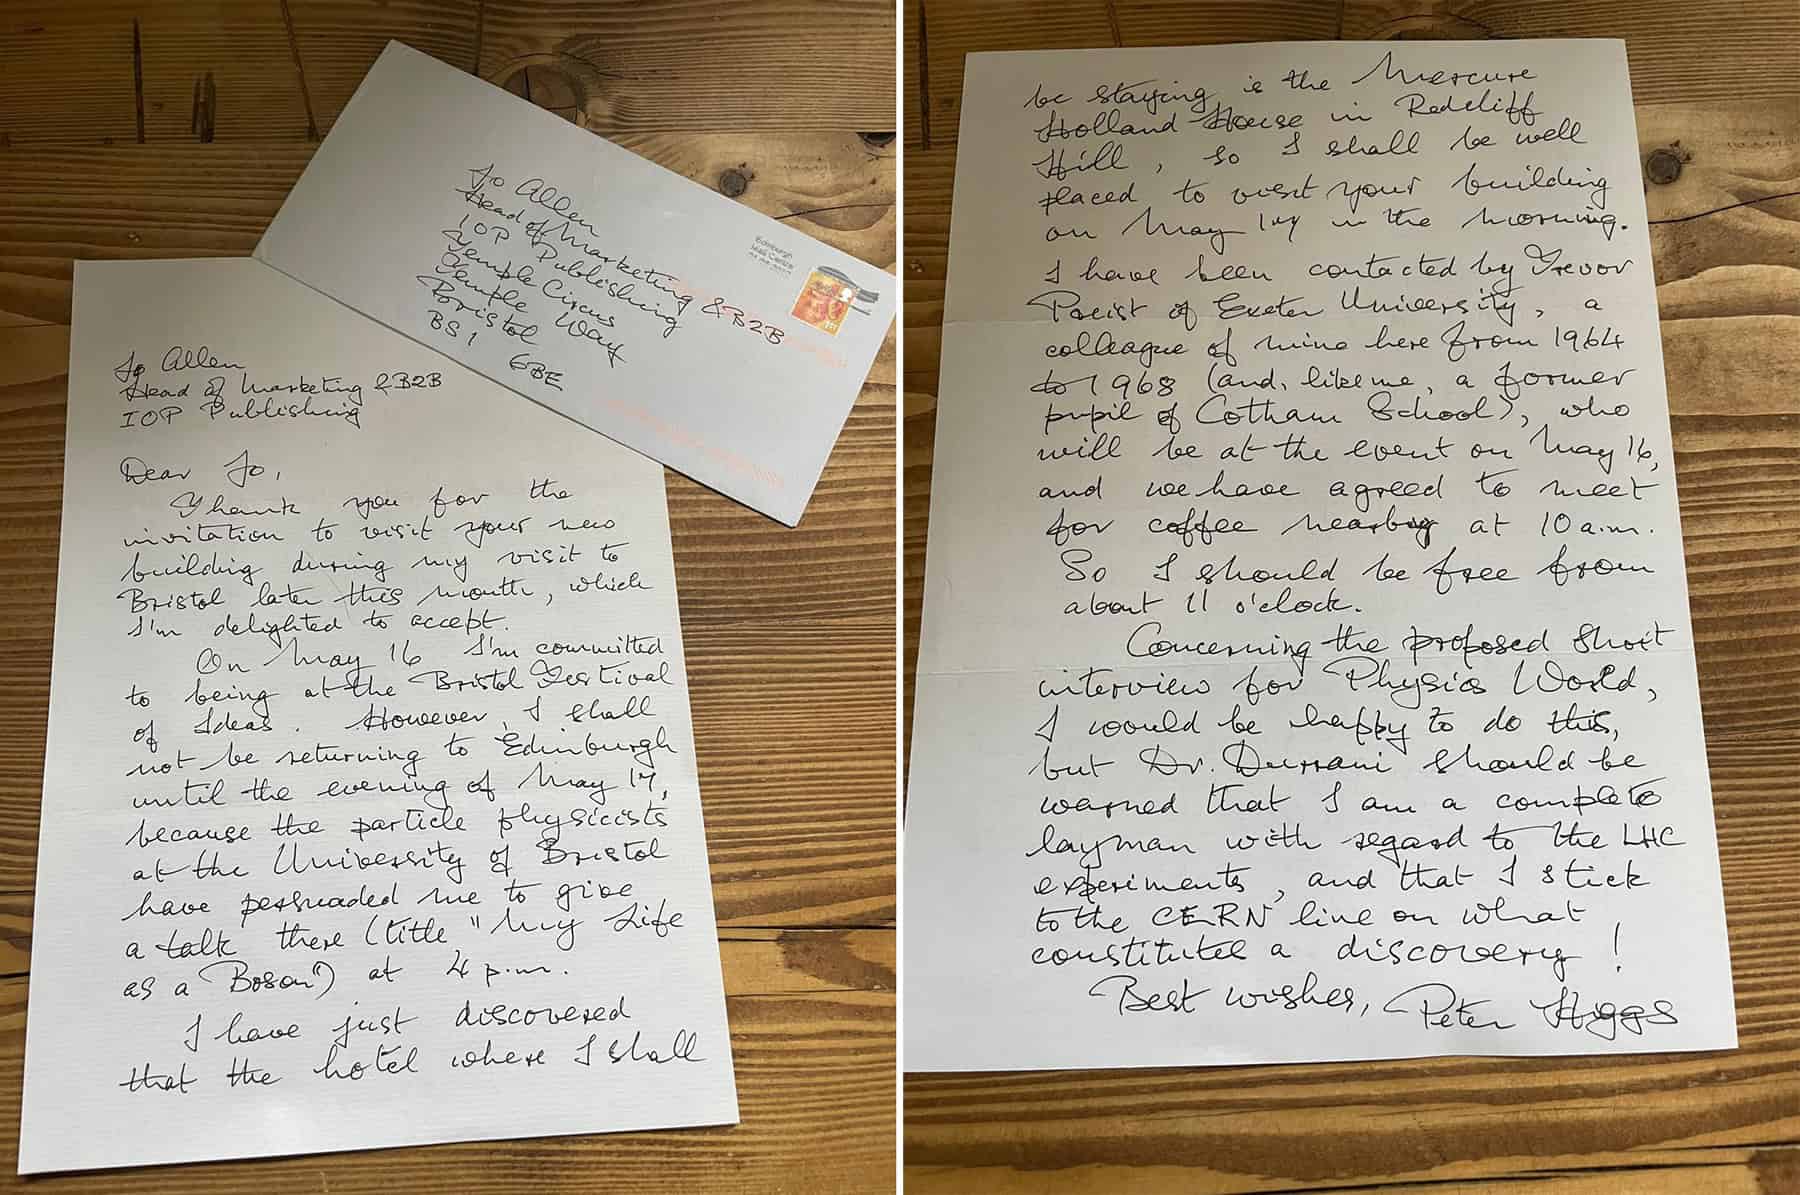 Jo Allen
Head of Marketing & B2B
IOP Publishing
Temple Circus
Temple Way
Bristol
BS1 6BE
Edinburgh
Mail Centre
1st
Jo Allen
Head of Marketing & B2B
IOP Publishing
Dear Jo,
Thank you for the
invitation to visit your new
building during my visit to
Bristol later this month, which
I'm delighted to accept.
On May 16 I'm committed
to being at the Bristol Festival
of Ideas. However, I shall
not be returning to Edinburgh
until the evening of May 17,
because the particle physicists
at the University of Bristol
have persuaded me to give
a talk there (title "My Life
as a Boson") at 4 p.m.
I have just discovered
that the hotel where I shall
be staying is the Mercure
Holland House in Redcliff
Hill, so I shall be well
placed to visit your building
on May 17 in the morning.
I have been contacted by Trevor
Preist of Exeter University, a
colleague of mine here from 1964
to 1968 (and, like me, a former
pupil of Cotham School), who
will be at the event on May 16,
and we have agreed to meet
for coffee nearby at 10 a.m.
So I should be free from
about 11 o'clock.
Concerning the proposed short
interview for Physics World,
I would be happy to do this,
but Dr. Durrani should be
warned that I am a complete
layman with regard to the LHC
experiments, and that I stick
to the CERN line on what
constitutes a discovery!
Best wishes, Peter Higgs